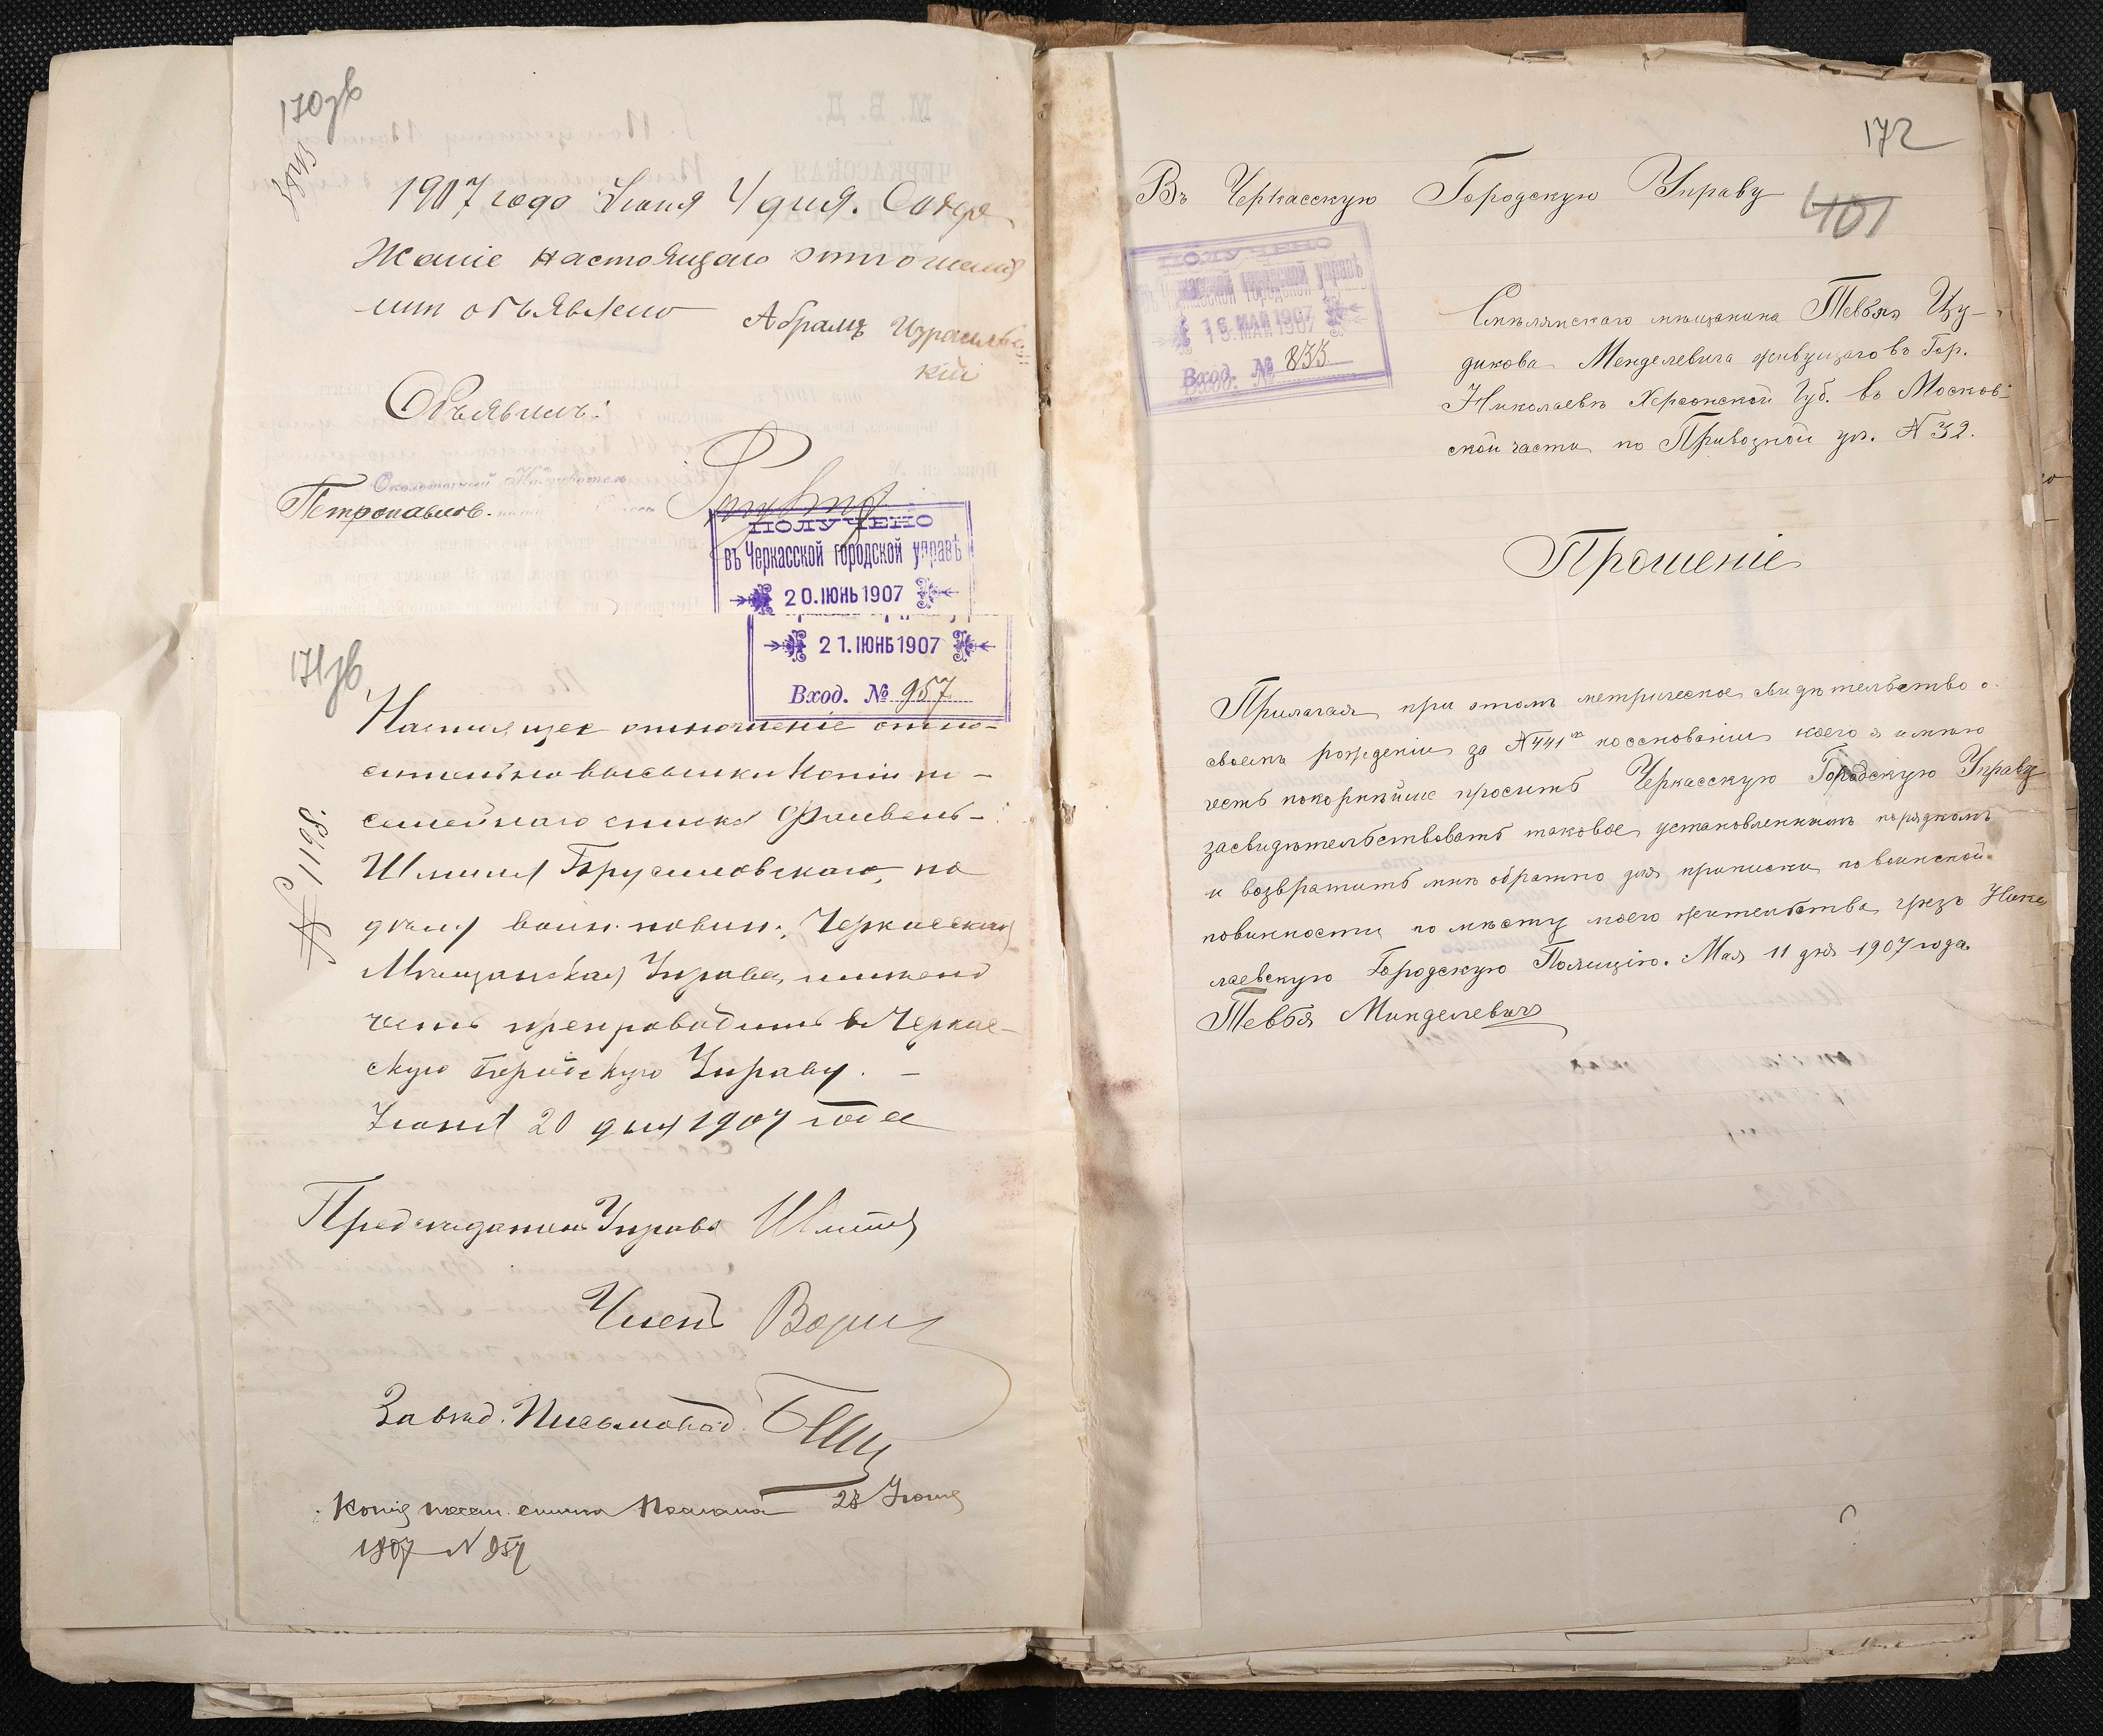 170зв
1907 года Іюня 4 дня. Содер
жаніе настоящаго отношенія
мнѣ объявлено Абрамъ Израилев
кій
Объявилъ:
Околоточный Надзиратель
Петропавлов.
ПОЛУЧЕНО
въ Черкасской городской управѣ
20. ІЮНЬ 1907
21. ІЮНЬ 1907
Вход. № 957
171зв
№ 1198.
Настоящее отношеніе отно-
сительно высылки копіи по-
семейнаго списка Файвель-
Шмиля Борусиновскаго, по
дѣлу воин. повин., Черкасская
Мѣщанская Управа, имѣетъ
честь препроводить въ Черкас-
скую Городскую Управу. –
Іюня 20 дня 1907 года
Предсѣдатель Управы
Членъ
Завѣд. Письмовод.
Копія посем. списка послана 23 Іюня
1907 N 957
172
Въ Черкасскую Городскую Управу
401
ПОЛУЧЕНО
въ Черкасской городской управѣ
16. МАЙ 1907
Вход. № 833
Смѣлянскаго мѣщанина Тевья Цу-
дикова Менделевича живущаго въ Гор.
Николаевѣ Херсонской Губ. въ Москов-
ской части по Привозной ул. N 32.
Прошеніе
Прилагая при этомъ метрическое свидѣтельство о
своемъ рожденіи за N 441 на основаніи коего я имѣю
честь покорнѣйше просить Черкасскую Городскую Управу
засвидѣтельствовать таковое установленнымъ порядкомъ
и возвратить мнѣ обратно для приписки по воинской
повинности по мѣсту моего жительства чрезъ Нико
лаевскую Городскую Полицію. Мая 11 дня 1907 года.
Тевья Минделевичъ